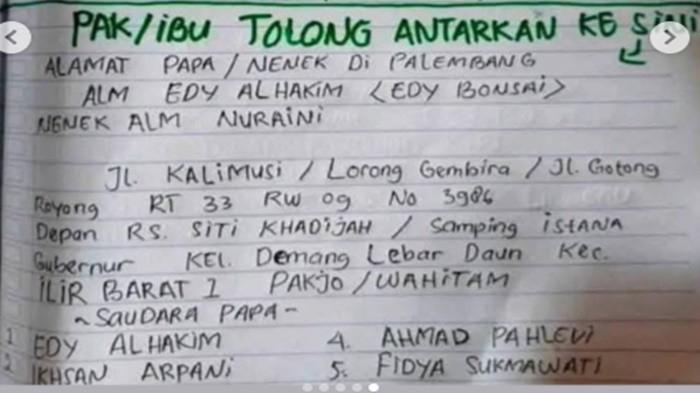 PAK/IBU TOLONG ANTARKAN KE SINI
ALAMAT PAPA / NENEK Di PALEMBANG
ALM EDY ALHAKIM <EDY BONSAI>
NENEK ALM NURAINI
JL. KALIMUSI / Lorong Gembira / JL. Gotong
Royong RT 33 RW 09 No 3986
Depan RS. SITI KHADIJAH / Samping ISTANA
Gubernur KEL. Demang Lebar Daun Kec.
ILIR BARAT 1 PAKJO / WAHITAM
~ SAUDARA PAPA -
1 EDY ALHAKIM 4. AHMAD PAHLEVI
2 IKHSAN ARPANI 5. FIDYA SUKMAWATI